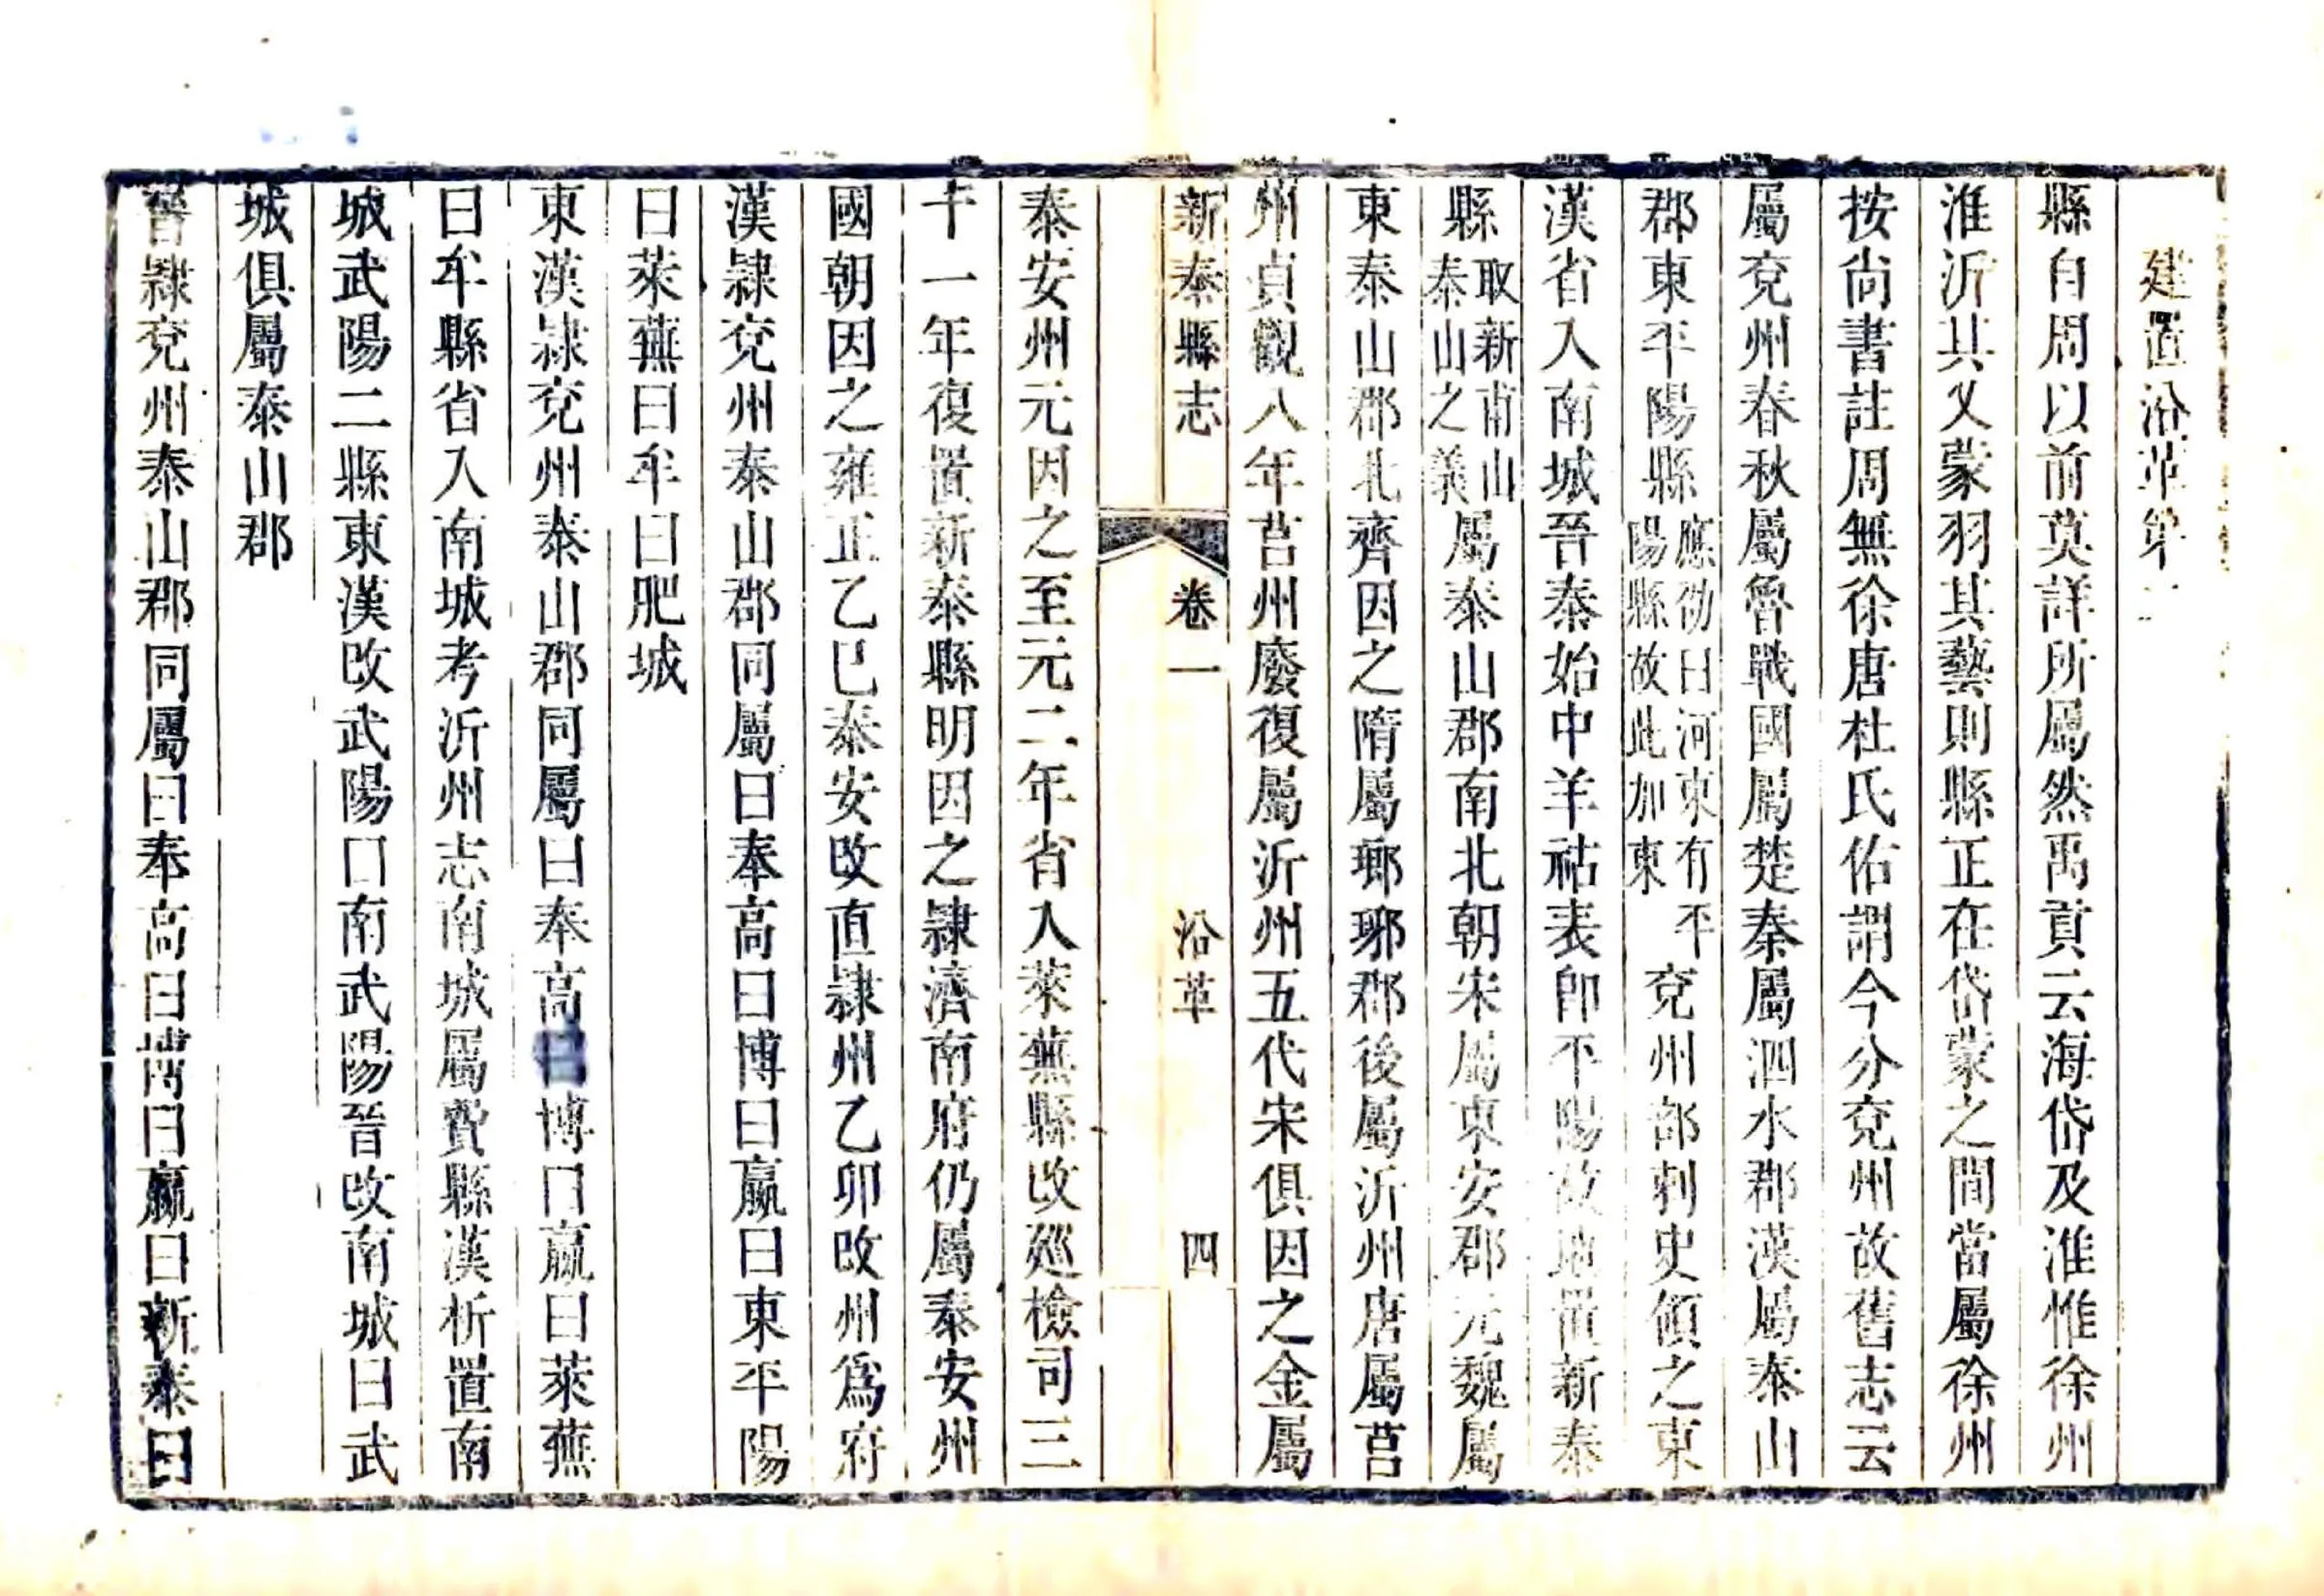 建置沿革第二
縣自周以前莫詳所屬然禹貢云海岱及淮惟徐州
淮沂其乂蒙羽其藝則縣正在岱蒙之間當屬徐州
按尚書註周無徐唐杜氏佑謂今分兗州故舊志云
屬兗州春秋屬魯戰國屬楚秦屬泗水郡漢屬泰山
郡東平陽縣應劭曰河東有平陽縣故此加東兗州部刺史領之東
漢省入南城晉泰始中羊祜表卽平陽故地置新泰
縣取新甫山泰山之義屬泰山郡南北朝宋屬東安郡元魏屬
東泰山郡北齊因之隋屬瑯琊郡後屬沂州唐屬莒
州貞觀八年莒州廢復屬沂州五代宋俱因之金屬
新泰縣志 卷一 沿革 四
泰安州元因之至元二年省入萊蕪縣改廵檢司三
十一年復置新泰縣明因之隸濟南府仍屬泰安州
國朝因之雍正乙巳泰安改直隸州乙卯改州爲府
漢隸兗州泰山郡同屬曰奉高曰博曰嬴曰東平陽
曰萊蕪曰牟曰肥城
東漢隸兗州泰山郡同屬曰奉高曰博曰嬴曰萊蕪
曰牟縣省入南城考沂州志南城屬費縣漢析置南
城武陽二縣東漢改武陽曰南武陽晉改南城曰武
城俱屬泰山郡
晉隸兗州泰山郡同屬曰奉高曰博曰嬴曰新泰曰